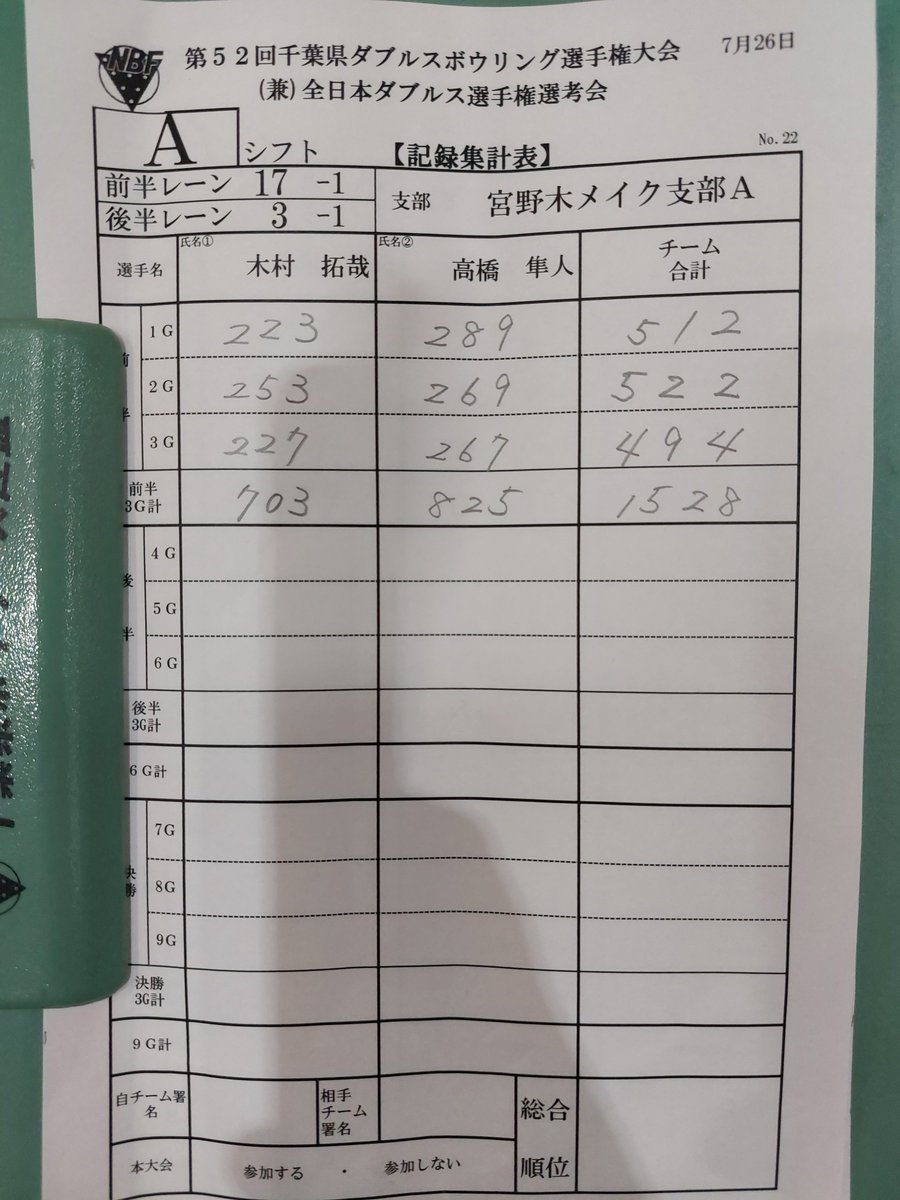 NBF
第52回千葉県ダブルスボウリング選手権大会 7月26日
(兼)全日本ダブルス選手権選考会
A シフト 【記録集計表】 No. 22
前半レーン 17 -1
後半レーン 3 -1
支部 宮野木メイク支部A
選手名 氏名① 木村 拓哉 氏名② 高橋 隼人 チーム合計
前半
1G 223 289 512
2G 253 269 522
3G 227 267 494
前半3G計 703 825 1528
後半
4G
5G
6G
後半
3G計
6G計
決勝
7G
8G
9G
決勝
3G計
9G計
自チーム署名 相手チーム署名 総合順位
本大会 参加する ・ 参加しない